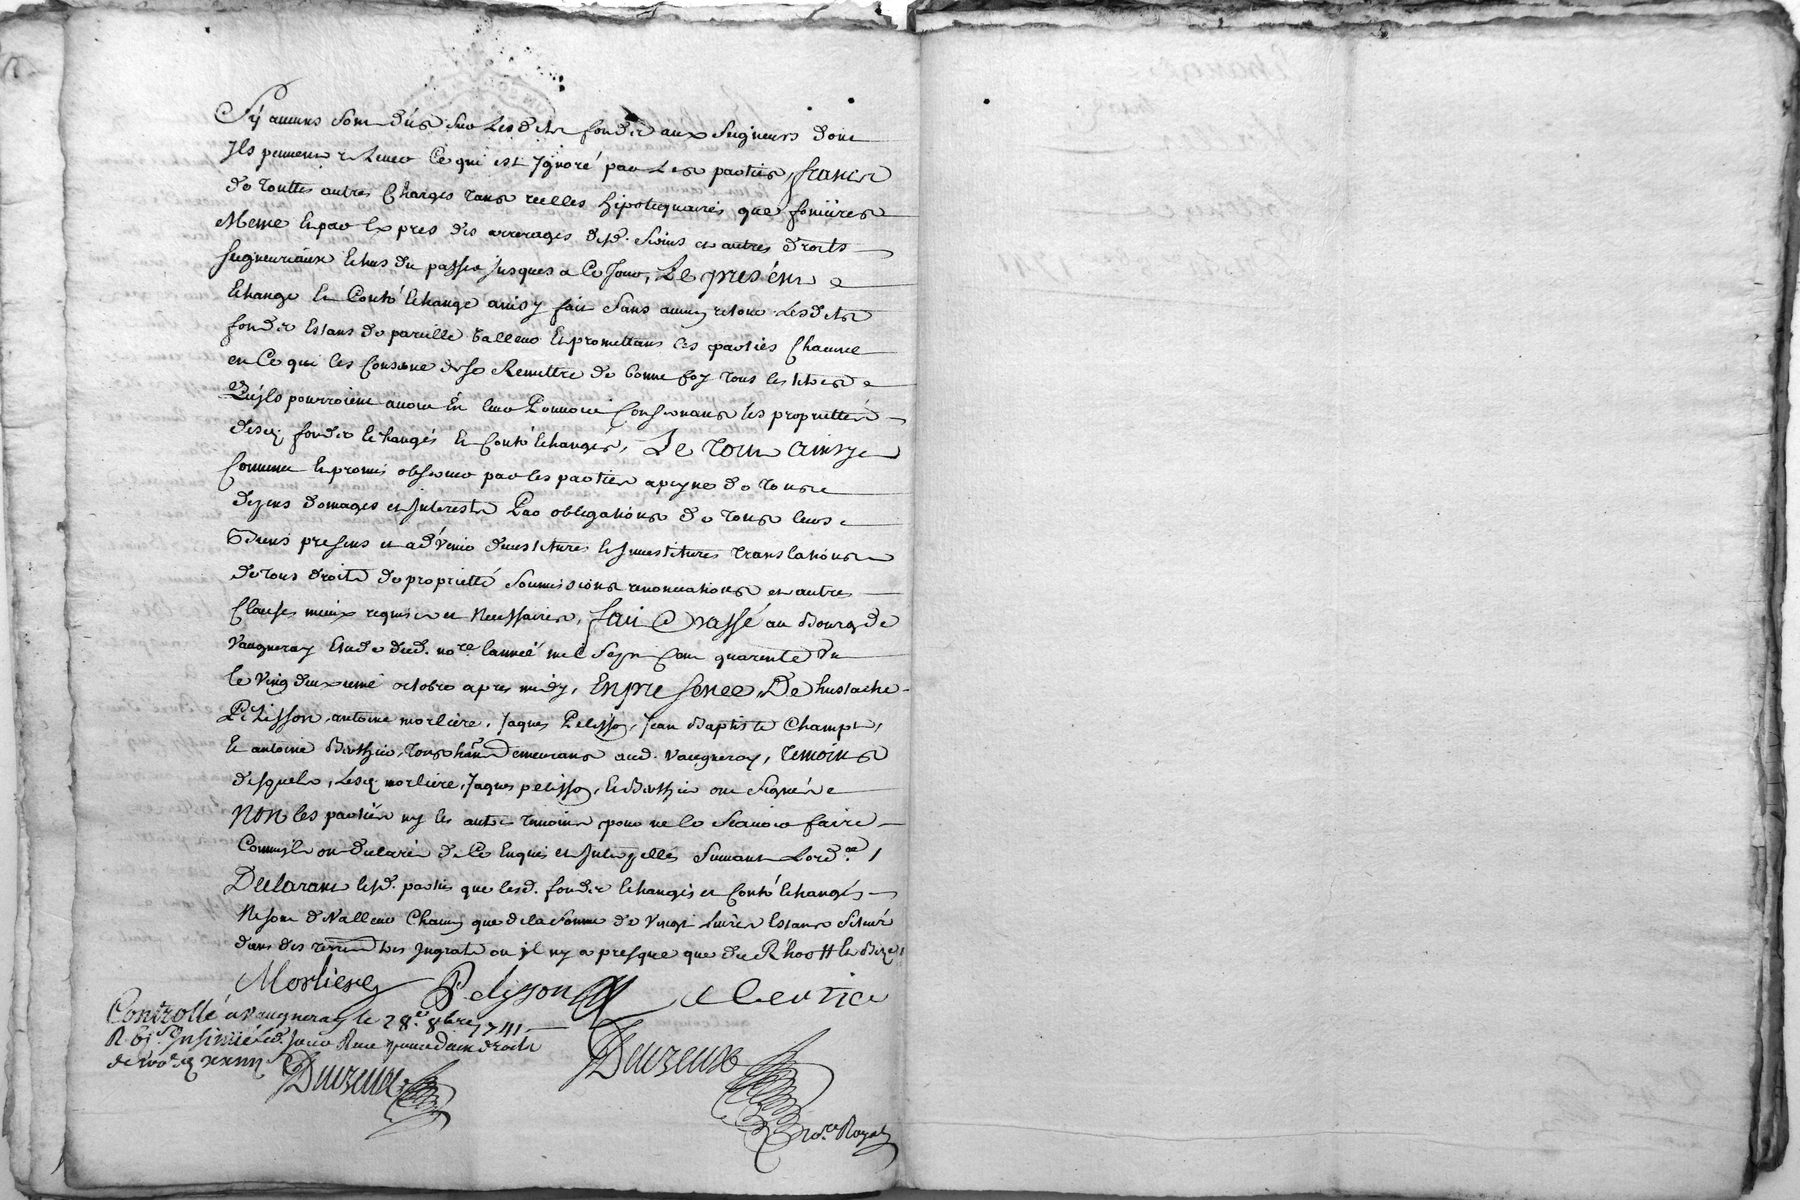 Sy aucuns sont deüs sur lesdits fondz aux seigneurs dont
Jls peuvent relever Ce qui est Jgnoré par les parties, francs
de touttes autres Charges tant reelles hipotequaires que fonsieres
Meme Et par Expres des arrerages desd. servis et autres droits
seigneuriaux Echus du passé jusques a Ce jour, Le present
Echange Et Contr'Echange ainsy fait sans aucun retour Lesdits
fondz Estans de pareille valleur Et promettans les parties Chacune
en Ce qui les Conserne de se Remettre de bonne foy tous les titres
Qu'jls pourroient avoir En leur Pouvoir Consernans les proprietés
desd. fondz Echangés Et Contr'Echangés, Le tout ainsy
Convenu Et promis observer par les parties a peyne de tous
depens domages et Jnterests Par obligations de tous leurs
Biens presens et advenir devestitures Et Jnvestitures translations
de tous droits de proprietté soumissions renonciations et autres
Clauses mieux requises et Necessaires, fait Et Passé au Bourg de
Vaugneray Etude dud. nore. l'année mil sept Cent quarente Un
le Vingt deuxieme octobre apres midy, En presence De heustache
Pelisson, antoine morliere, Jaques Pelisson, Jean Baptiste Champt,
Et antoine Berthier, tous habt. demeurans aud. Vaugneray, temoins
desquels, Lesd. morliere, Jaques pelisson, Et Berthier ont signés
Non les parties ny les autres temoins pour ne le scavoir faire
Comm'jls ont declarés de Ce Enquis et Jnterpellés suivant L'ordce. /
Declarant lesd. parties que lesd. fondz Echangés et Contr'Echangés
Ne sont de Valleur Chacun que de la somme de Vingt Livres Estans situés
dans des terrein tres Jngrats ou jl ny a presque que du
Morliere P. elisson Bertier
Controllé a Vaugneray le 28e. 8bre 1741
R. Jnsinué led. Jour Reçu pour deux droits
Duizeux
Duizeux
nore. Royal